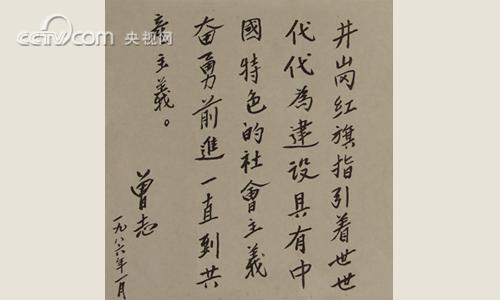 cctv.com 央视网
井岗红旗指引着世世
代代為建设具有中
國特色的社會主義
奋勇前進一直到共
产主義。
曾志
一九八六年一月